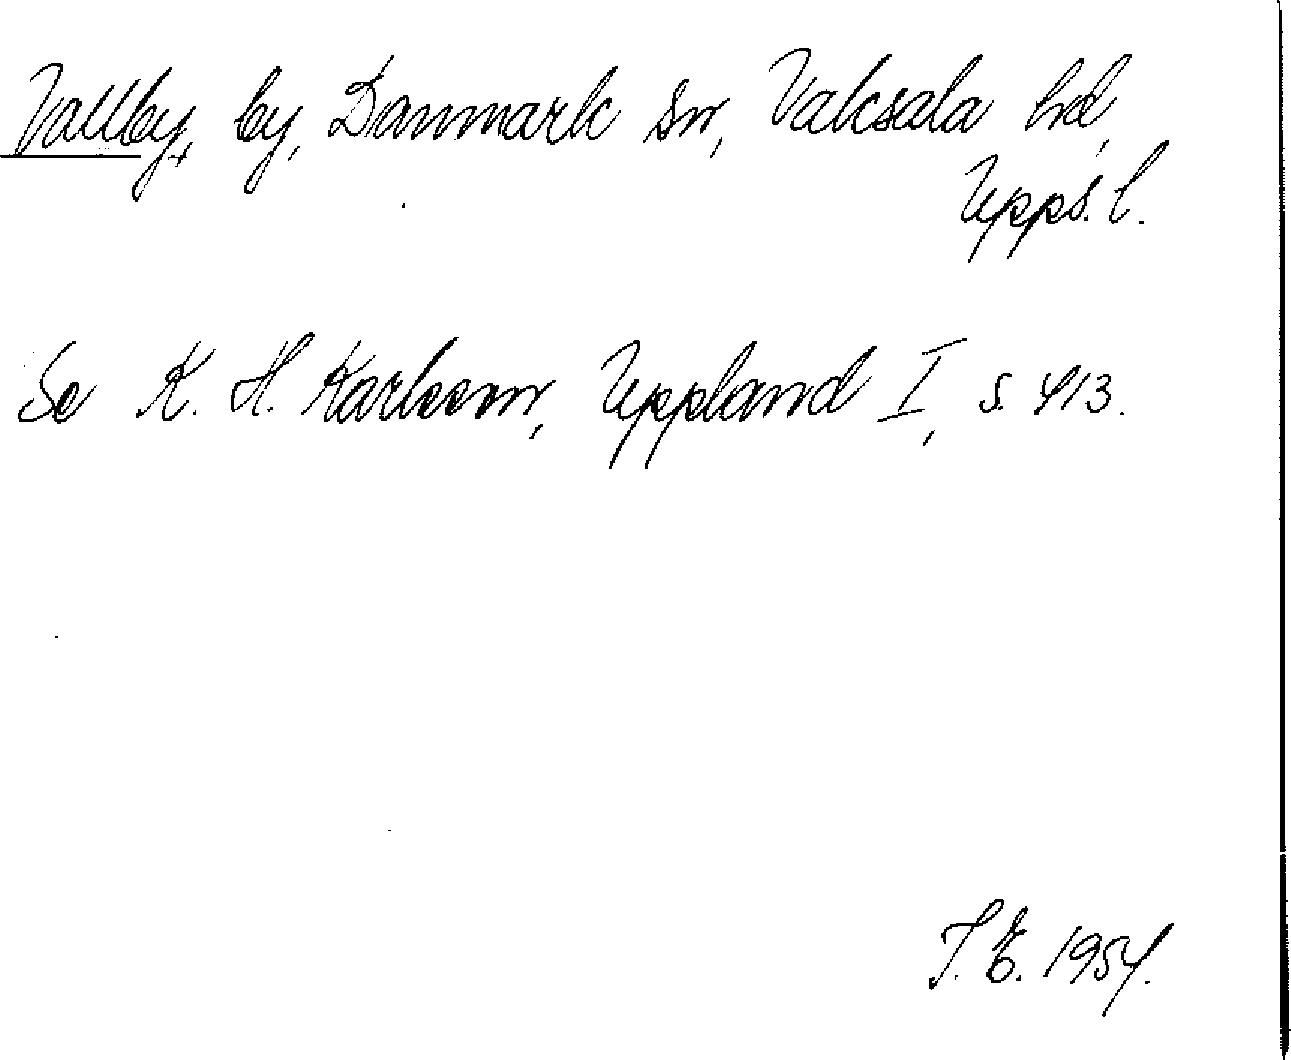 Vallby, by, Danmark sn, Vaksala hd,
Upps. l.
Se K. H. Karlsson, Uppland I, s. 413.
T. E. 1954.